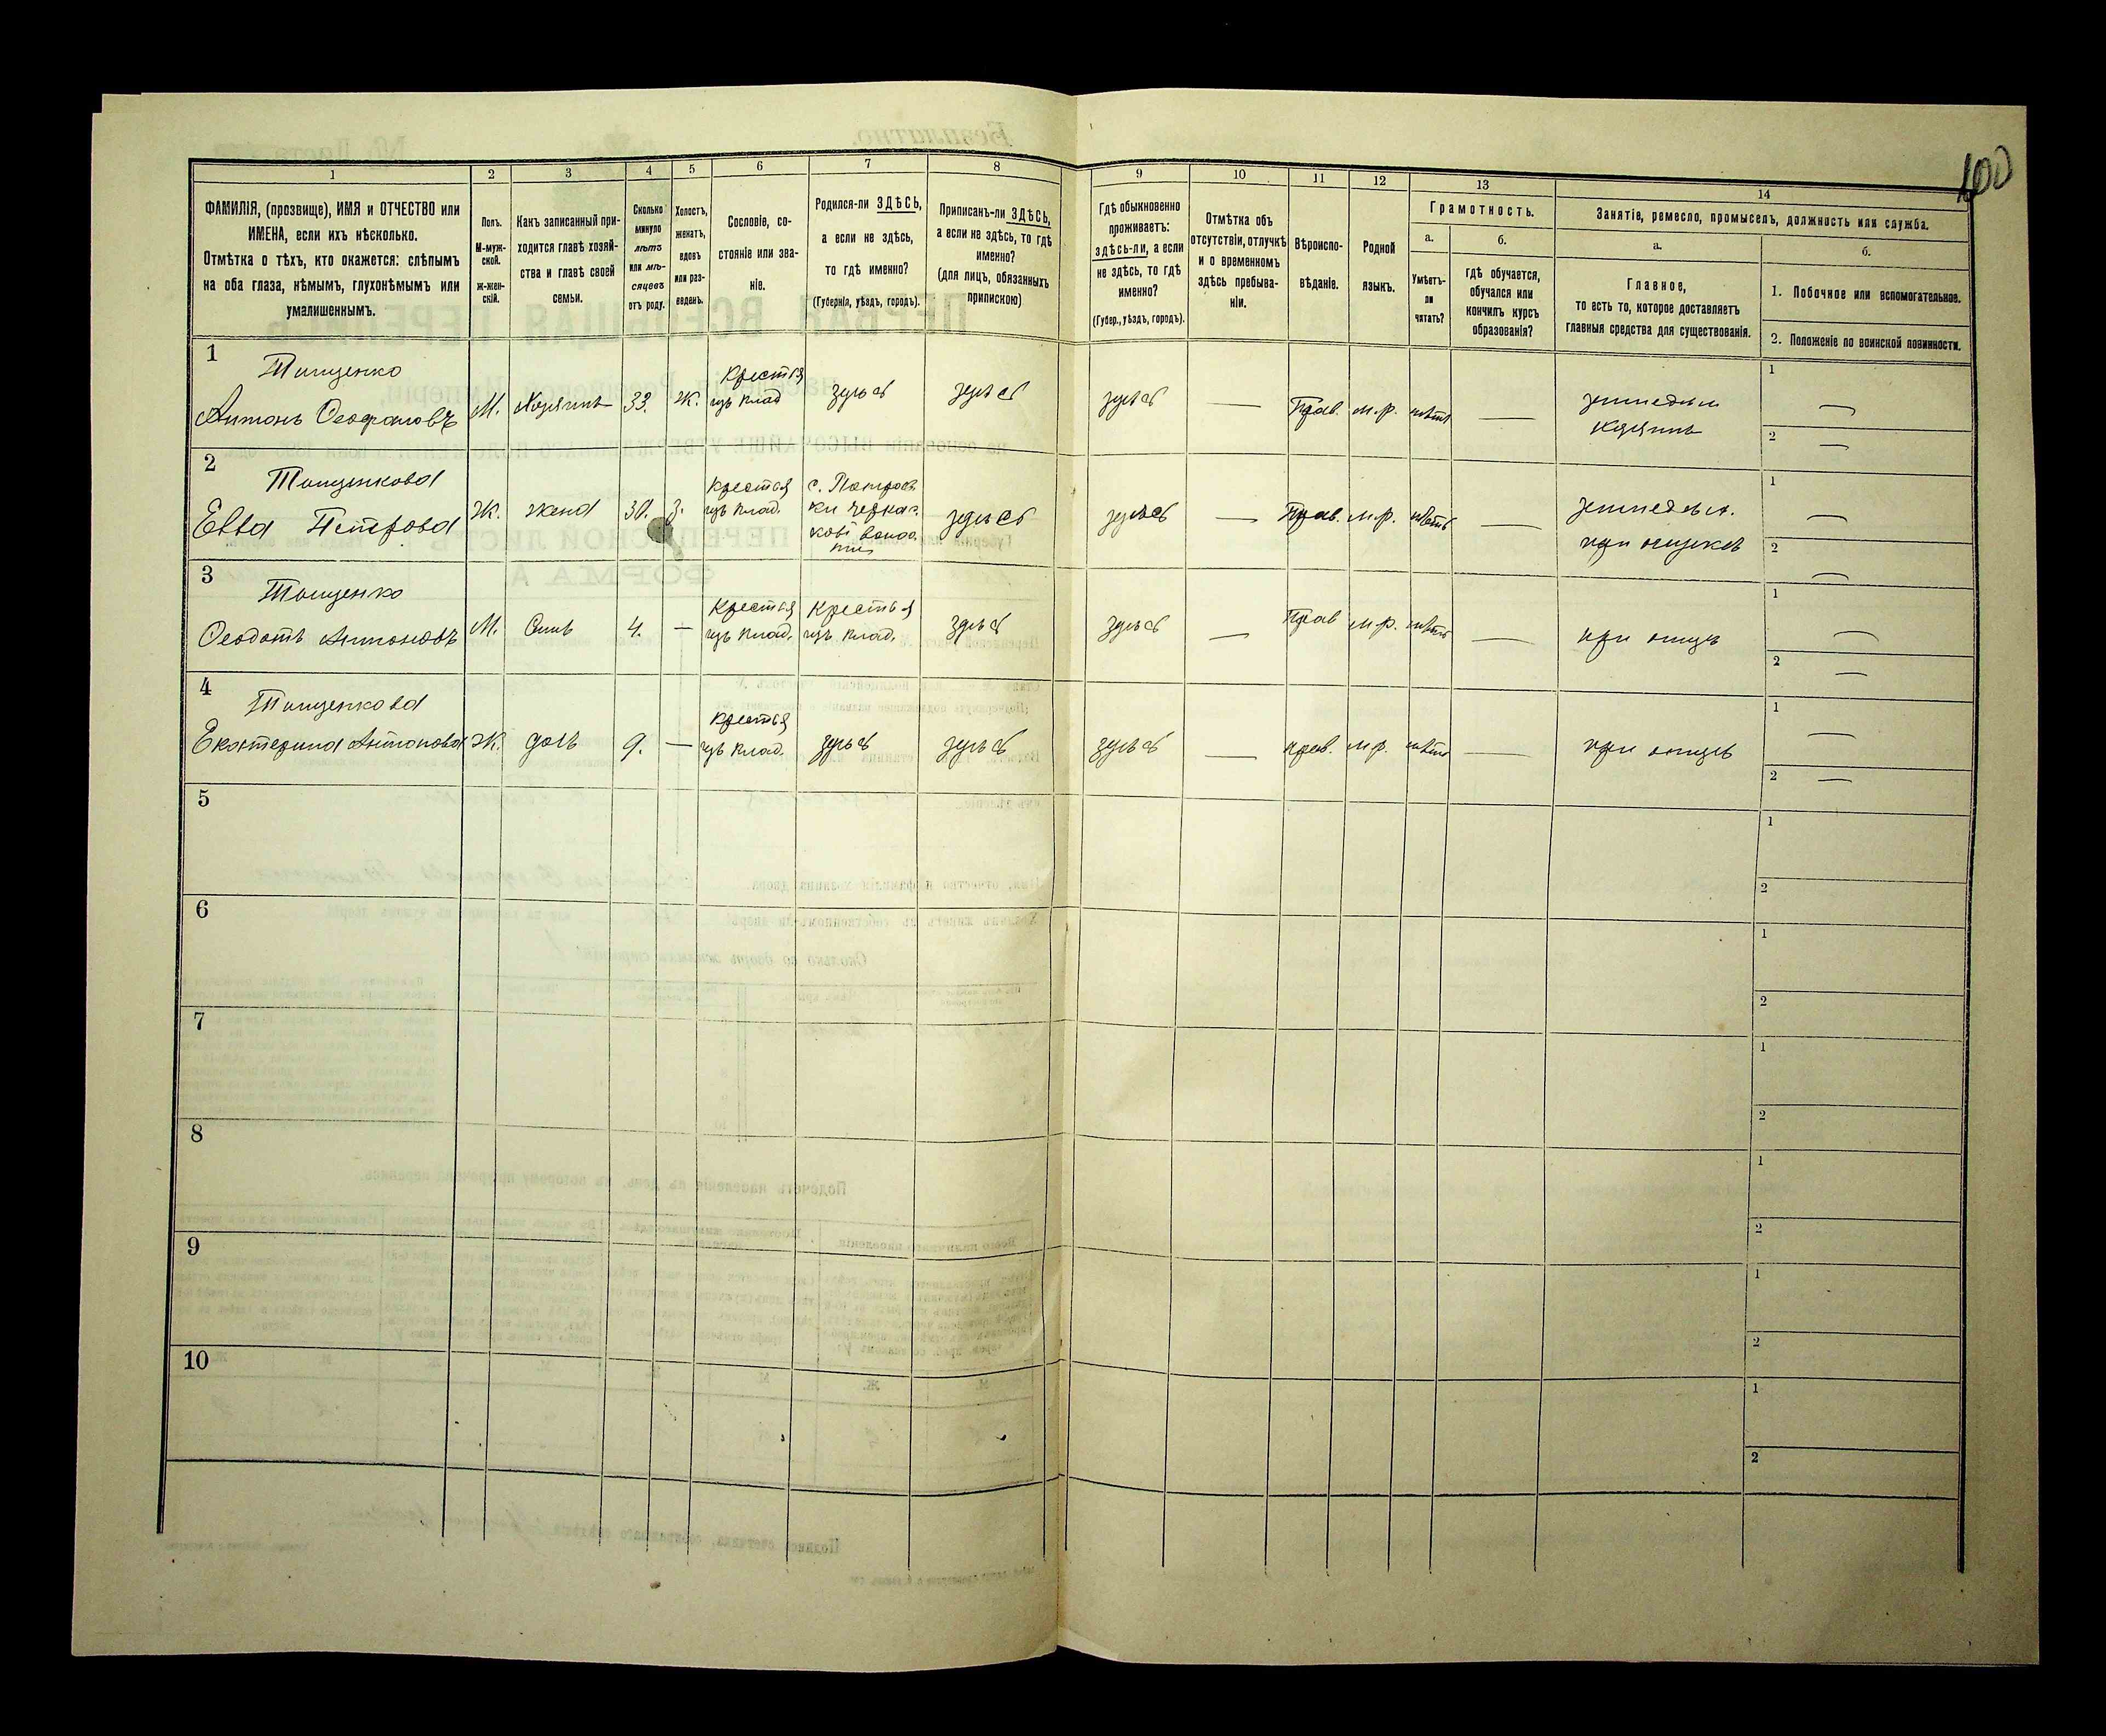 100
1
2
3
4
5
6
7
8
9
10
11
12
13
14
ФАМИЛІЯ, (прозвище), ИМЯ и ОТЧЕСТВО или
ИМЕНА, если ихъ нѣсколько.
Отмѣтка о тѣхъ, кто окажется: слѣпымъ
на оба глаза, нѣмымъ, глухонѣмымъ или
умалишеннымъ.
Полъ.
М-муж-
ской.
Ж-жен-
скій.
Какъ записанный при-
ходится главѣ хозяй-
ства и главѣ своей
семьи.
Сколько
минуло
лѣтъ
или мѣ-
сяцевъ
отъ роду.
Холостъ,
женатъ,
вдовъ
или раз-
веденъ.
Сословіе, со-
стояніе или зва-
ніе.
Родился-ли ЗДѢСЬ,
а если не здѣсь,
то гдѣ именно?
(Губернія, уѣздъ, городъ).
Приписанъ-ли ЗДѢСЬ,
а если не здѣсь, то гдѣ
именно?
(для лицъ, обязанныхъ
припискою)
Гдѣ обыкновенно
проживаетъ:
здѣсь-ли, а если
не здѣсь, то гдѣ
именно?
(Губер., уѣздъ, городъ).
Отмѣтка объ
отсутствіи, отлучкѣ
и о временномъ
здѣсь пребыва-
ніи.
Вѣроиспо-
вѣданіе.
Родной
языкъ.
Грамотность.
а.
Умѣетъ-
ли
читать?
б.
гдѣ обучается,
обучался или
кончилъ курсъ
образованія?
Занятіе, ремесло, промыселъ, должность или служба.
а.
Главное,
то есть то, которое доставляетъ
главныя средства для существованія.
б.
1. Побочное или вспомогательное.
2. Положеніе по воинской повинности.
1
Тищенко
Антонъ Ѳеофановъ
М.
Хозяинъ
33.
Ж.
Крестья
изъ влад
здѣсь
здѣсь
здѣсь
—
Прав.
м.р.
нѣтъ
—
1 —
2 —
2
Тищенкова
Евва Петрова
Ж.
жена
30.
З.
Крестья
изъ влад.
здѣсь
здѣсь
—
Прав.
м.р.
нѣтъ
—
1 —
2 —
3
Тищенко
Ѳеодотъ Антоновъ
М.
Сынъ
4.
—
Крестья
изъ влад.
Крестья
изъ влад.
здѣсь
здѣсь
—
Прав
м.р.
нѣтъ
—
при отцѣ
1 —
2 —
4
Тищенкова
Екатерина Антонова
Ж.
дочь
9.
—
Крестья
изъ влад.
здѣсь
здѣсь
здѣсь
—
прав.
м.р.
нѣтъ
—
при отцѣ
1 —
2 —
5
1
2
6
1
2
7
1
2
8
1
2
9
1
2
10
1
2